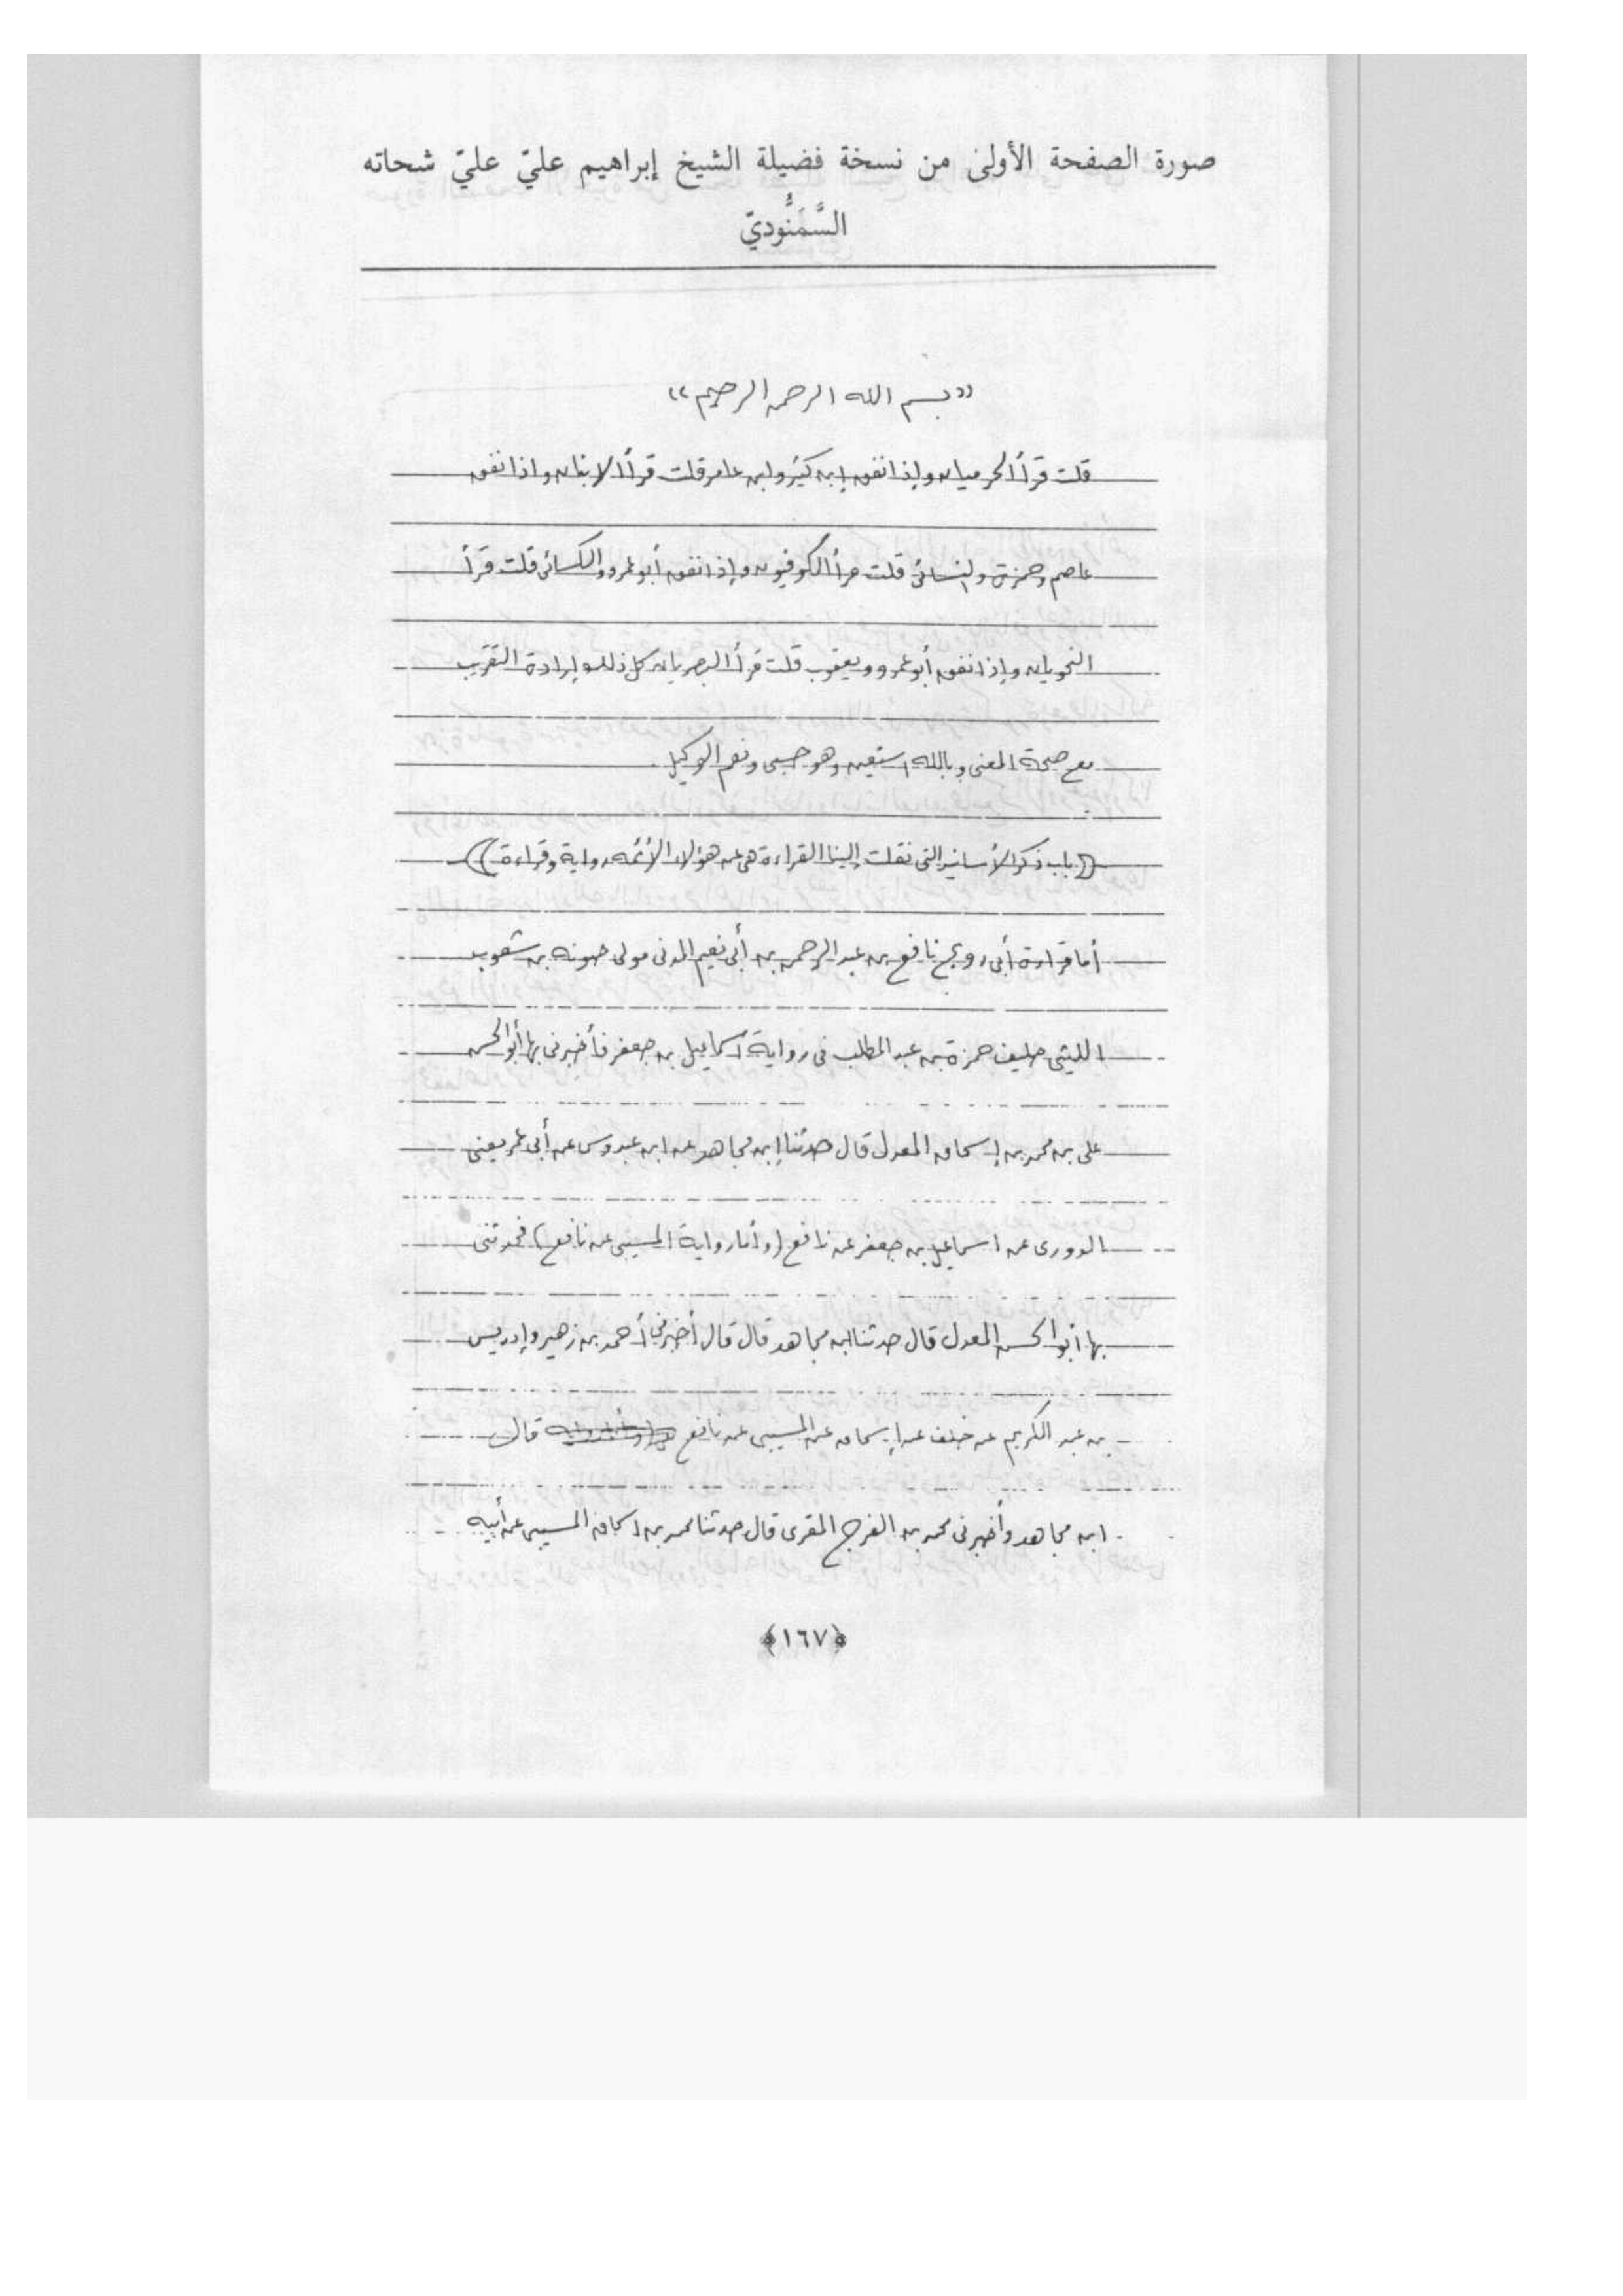 صورة الصفحة الأولىٰ من نسخة فضيلة الشيخ إبراهيم عليّ عليّ شحاته
السَّمَنُّوديّ
«بسم الله الرحمن الرحيم»
قلت قرأ الحرميان وإذا اتفق إبن كثير وابن عامر قلت قرأ الابنان وإذا اتفق
عاصم وحمزة والكسائى قلت قرأ الكوفيون وإذا اتفق أبو عمرو والكسائى قلت قرأ
النحويان وإذا اتفق أبو عمرو ويعقوب قلت قرأ البصريان كل ذلك إرادة التقريب
مع صحة المعنى وبالله استعين وهو حسبى ونعم الوكيل.
((باب ذكر الأسانيد التى نقلت إلينا القراءة هى عن هؤلاء الأئمة رواية وقراءة))
أما قراءة أبى رويم نافع بن عبد الرحمن بن أبى نعيم المدنى مولى جعونة بن شعوب
الليثى حليف حمزة بن عبد المطلب فى رواية أسماعيل بن جعفر فأخبرنى بها أبو الحسن
على بن محمد بن إسحاق المعدل قال حدثنا إبن مجاهد عن ابن عبدوس عن أبى عمر يعنى
الدورى عن اسماعيل بن جعفر عن نافع (وأما رواية المسيبى عن نافع) فحدثنى
بها أبو الحسن المعدل قال حدثنا ابن مجاهد قال قال أخبرنى أحمد بن زهير وإدريس
بن عبد الكريم عن خلف عن إسحاق عن المسيبى عن نافع قال
ابن مجاهد وأخبرنى محمد بن الفرج المقرى قال حدثنا محمد بن اسحاق المسيبى عن أبيه
﴿١٦٧﴾